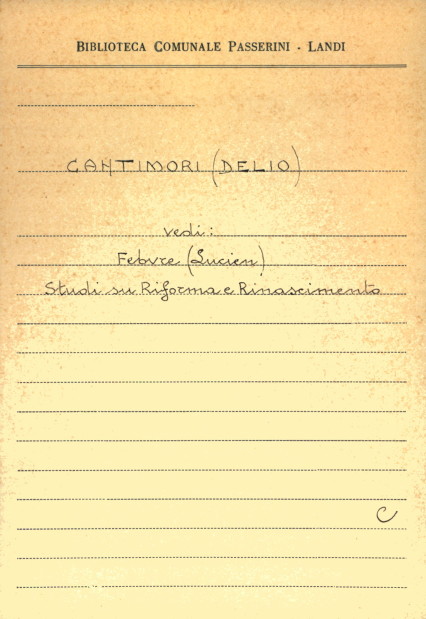 BIBLIOTECA COMUNALE PASSERINI - LANDI
CANTIMORI (DELIO)
vedi:
Febvre (Lucien)
Studi su Riforma e Rinascimento
C